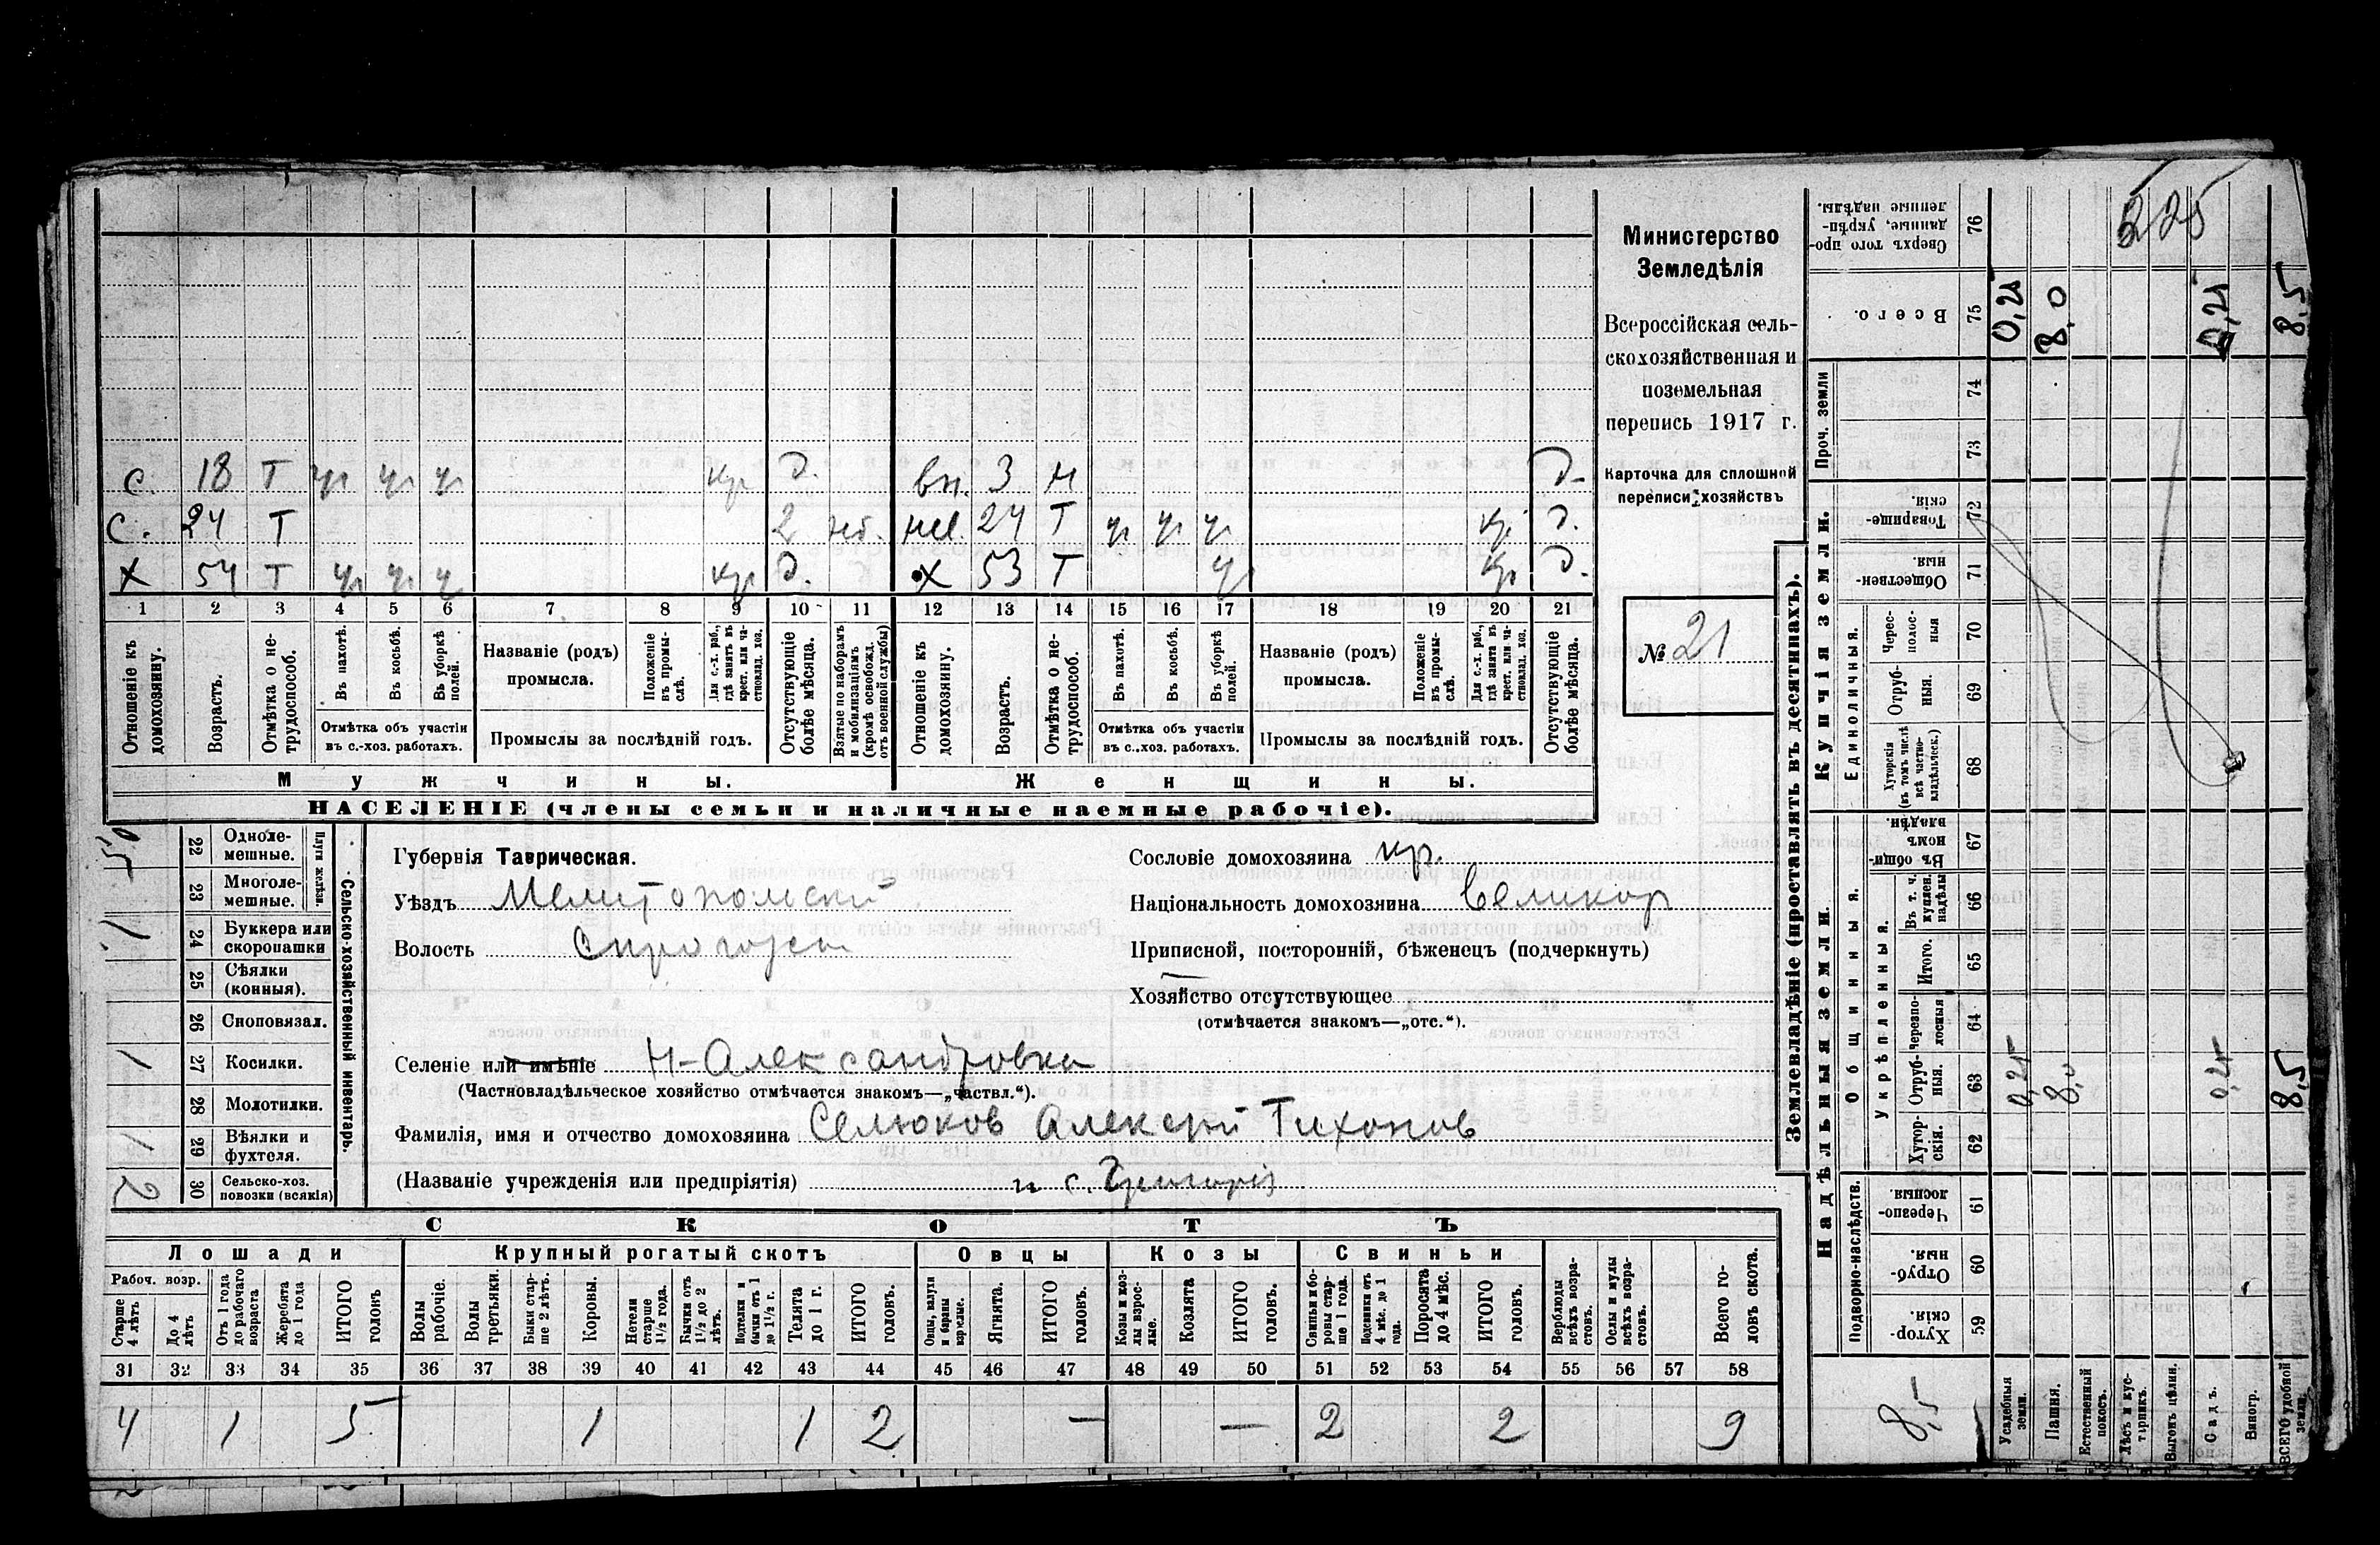 Министерство
Земледѣлія
Всероссійская сель-
скохозяйственная и
поземельная
перепись 1917 г.
Карточка для сплошной
переписи хозяйствъ
№ 21
225
с. 18 Т кр д. вн. 3 Н д.
с. 24 Т 2 нев. 24 Т кр д.
Х 54 Т кр д. Х 53 Т кр д.
1 2 3 4 5 6 7 8 9 10 11 12 13 14 15 16 17 18 19 20 21
Отношеніе къ домохозяину.
Возрастъ.
Отмѣтка о нетрудоспособ.
Въ пахотѣ.
Въ косьбѣ.
Въ уборкѣ полей.
Отмѣтка объ участіи
въ с.-хоз. работахъ.
Названіе (родъ)
промысла.
Положеніе въ промыслѣ.
Для с.-х. раб., гдѣ занятъ въ крест. или частновлад. хоз.
Промыслы за послѣдній годъ.
Отсутствующіе болѣе мѣсяца.
Взятые по наборамъ и мобилизаціямъ (кромѣ освобожд. отъ военной службы)
Отношеніе къ домохозяину.
Возрастъ.
Отмѣтка о нетрудоспособ.
Въ пахотѣ.
Въ косьбѣ.
Въ уборкѣ полей.
Отмѣтка объ участіи
въ с.-хоз. работахъ.
Названіе (родъ)
промысла.
Положеніе въ промыслѣ.
Для с.-х. раб., гдѣ занята въ крест. или частновлад. хоз.
Промыслы за послѣдній годъ.
Отсутствующіе болѣе мѣсяца.
Мужчины. Женщины.
НАСЕЛЕНІЕ (члены семьи и наличные наемные рабочіе).
Сельско-хозяйственный инвентарь.
Плуги желѣзн.
22 Одноле-
мешные.
23 Многоле-
мешные.
24 Буккера или
скоропашки
1
25 Сѣялки
(конныя).
26 Сноповязал.
27 Косилки.
1
28 Молотилки.
29 Вѣялки и
фухтеля.
1
30 Сельско-хоз.
повозки (всякія)
2
Губернія Таврическая.
Уѣздъ Мелитопольский
Волость
Сословіе домохозяина кр.
Національность домохозяина великор
Приписной, посторонній, бѣженецъ (подчеркнуть)
Хозяйство отсутствующее
(отмѣчается знакомъ—„отс.“).
Селеніе или имѣніе Н-Александровка
(Частновладѣльческое хозяйство отмѣчается знакомъ—„частвл.“).
Фамилія, имя и отчество домохозяина Селюков Алексѣй Тихонов
(Названіе учрежденія или предпріятія) и с. Григорій
СКОТЪ
Лошади Крупный рогатый скотъ Овцы Козы Свиньи
Рабоч. возр.
Старше 4 лѣтъ
До 4 лѣтъ
Отъ 1 года до рабочаго возраста
Жеребята до 1 года
ИТОГО головъ
Волы рабочіе.
Волы третьяки.
Быки старше 2 лѣтъ.
Коровы.
Нетели старше 1½ года.
Бычки отъ 1½ до 2 лѣтъ.
Нетелки и бычки отъ 1 до 1½ г.
Телята до 1 г.
ИТОГО головъ.
Овцы, валухи и бараны взрослые.
Ягнята.
ИТОГО головъ.
Козы и козлы взрослые.
Козлята
ИТОГО головъ.
Свиньи и боровы старше 1 года.
Подсвинки отъ 4 мѣс. до 1 года.
Поросята до 4 мѣс.
ИТОГО головъ.
Верблюды всѣхъ возрастовъ.
Ослы и мулы всѣхъ возрастовъ.
Всего головъ скота.
31 32 33 34 35 36 37 38 39 40 41 42 43 44 45 46 47 48 49 50 51 52 53 54 55 56 57 58
4 1 5 1 1 2 — — 2 2 9
Землевладѣніе (проставлять въ десятинахъ).
Надѣльныя земли.
Купчія земли.
Проч. земли
Подворно-наслѣдств.
Общинныя.
Укрѣпленныя.
Единоличныя.
59 Хуторскія.
60 Отрубныя.
61 Черезполосныя.
62 Хуторскія.
63 Отрубныя.
64 Черезполосныя
65 Итого.
66 Въ т. ч. куплен. надѣлы
67 Въ общиномъ владѣн.
68 Хуторскія (въ томъ числѣ всѣ частновладѣльческ.)
69 Отрубныя.
70 Чересполосныя
71 Общественныя.
72 Товарищескія.
73
74
75 Всего.
76 Сверхъ того проданные, укрѣпленные надѣлы.
Усадебныя земли. 0,25 0,25
Пашня. 8,0 8,0
Естественный покосъ.
Лѣсъ и кустарникъ.
Выгонъ цѣлин.
Садъ. 0,25 0,25
Виногр.
ВСЕГО удобной земли. 8,5 8,5
8,5